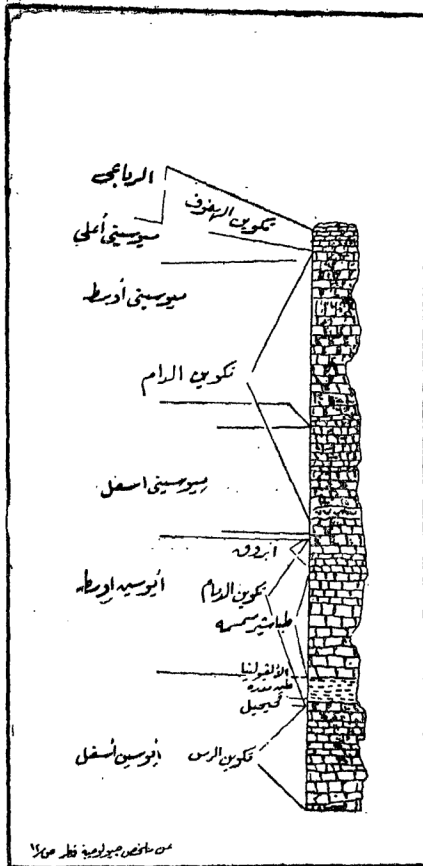 الرباعي
تكوين الهفوف
ميوسيني أعلى
ميوسيني أوسط
تكوين الدام
ميوسيني اسفل
أبروق
أيوسين اوسط
تكوين الدمام
طباشير سمسمه
الألفيولينا
طين مدره
فحيحيل
تكوين الرس
أيوسين أسفل
من ملخص جيولوجية قطر ص ١٢